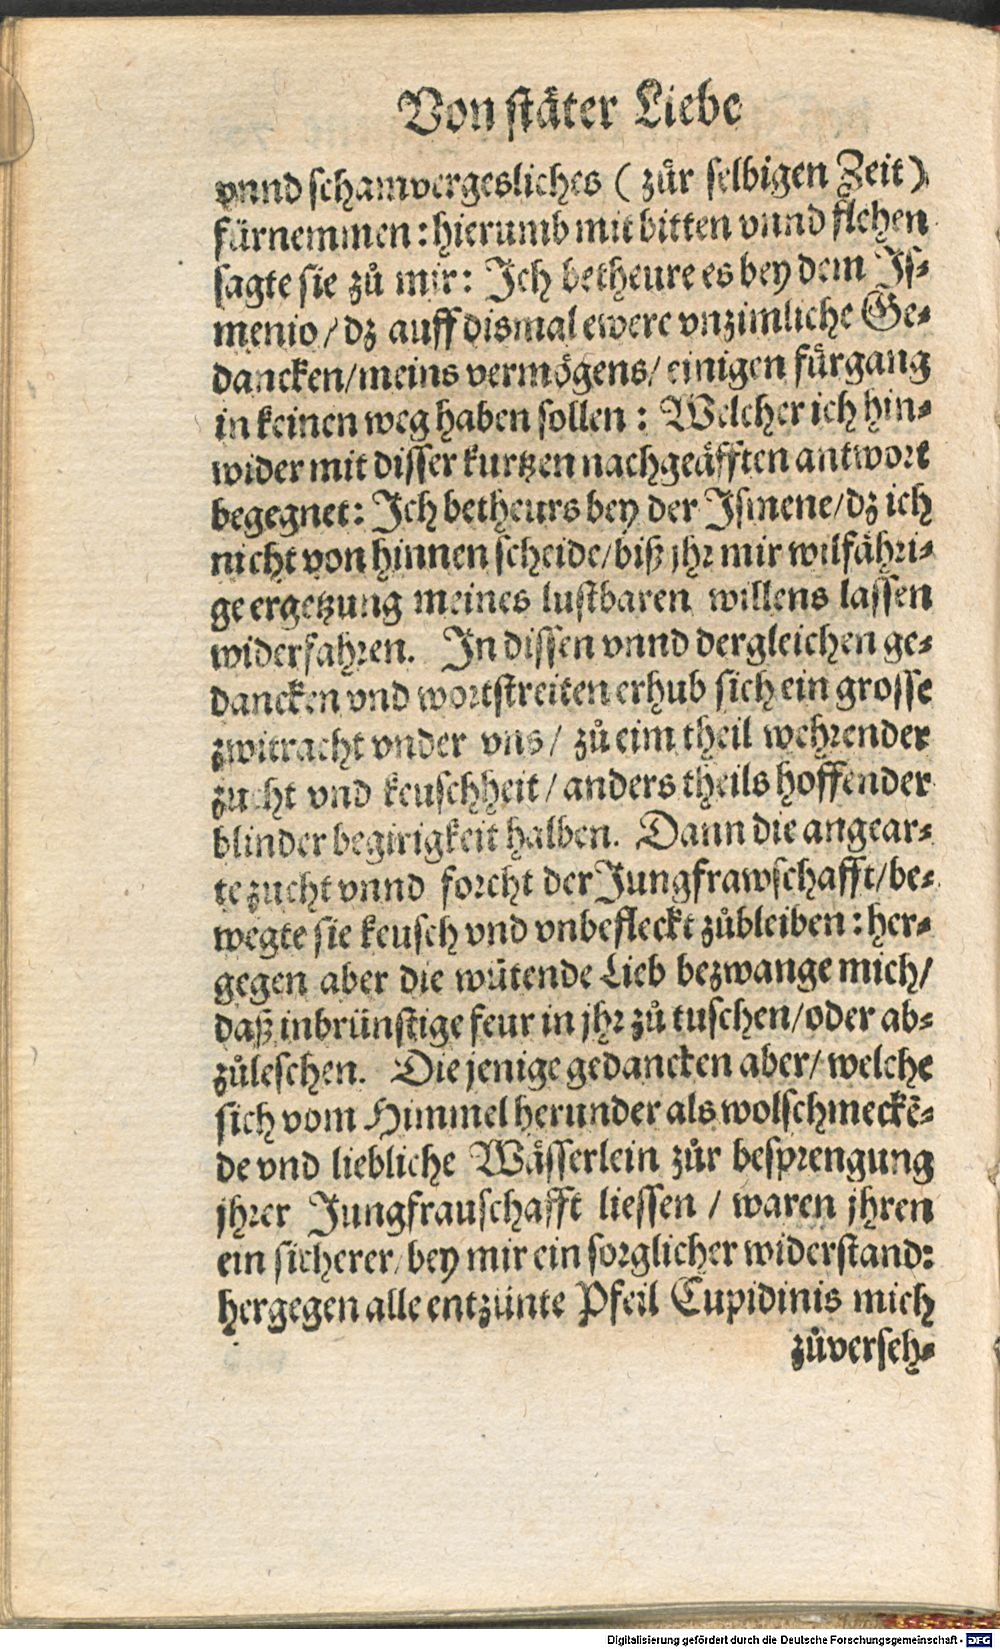 Von stäter Liebe
vnnd schamvergesliches ( zůr selbigen Zeit )
fürnemmen : hierumb mit bitten vnnd flehen
sagte sie zů mir : Ich betheure es bey dem Is-
menio / dz auff dismal ewere vnzimliche Ge-
dancken / meins vermögens / einigen fürgang
in keinen weg haben sollen : Welcher ich hin-
wider mit disser kurtzen nachgeäfften antwort
begegnet : Ich betheurs bey der Ismene / dz ich
nicht von hinnen scheide / biß jhr mir wilfähri-
ge ergetzung meines lustbaren willens lassen
widerfahren. In dissen vnnd dergleichen ge-
dancken vnd wortstreiten erhub sich ein grosse
zwitracht vnder vns / zů eim theil wehrender
zucht vnd keuschheit / anders theils hoffender
blinder begirigkeit halben. Dann die angear-
te zucht vnnd forcht der Jungfrawschafft / be-
wegte sie keusch vnd vnbefleckt zůbleiben : her-
gegen aber die wütende Lieb bezwange mich /
daß inbrünstige feur in jhr zů tuschen / oder ab-
zůleschen. Die jenige gedancken aber / welche
sich vom Himmel herunder als wolschmeckē-
de vnd liebliche Wässerlein zůr besprengung
jhrer Jungfrauschafft liessen / waren jhren
ein sicherer / bey mir ein sorglicher widerstand :
hergegen alle entzünte Pfeil Cupidinis mich
zůverseh-
Digitalisierung gefördert durch die Deutsche Forschungsgemeinschaft - DFG